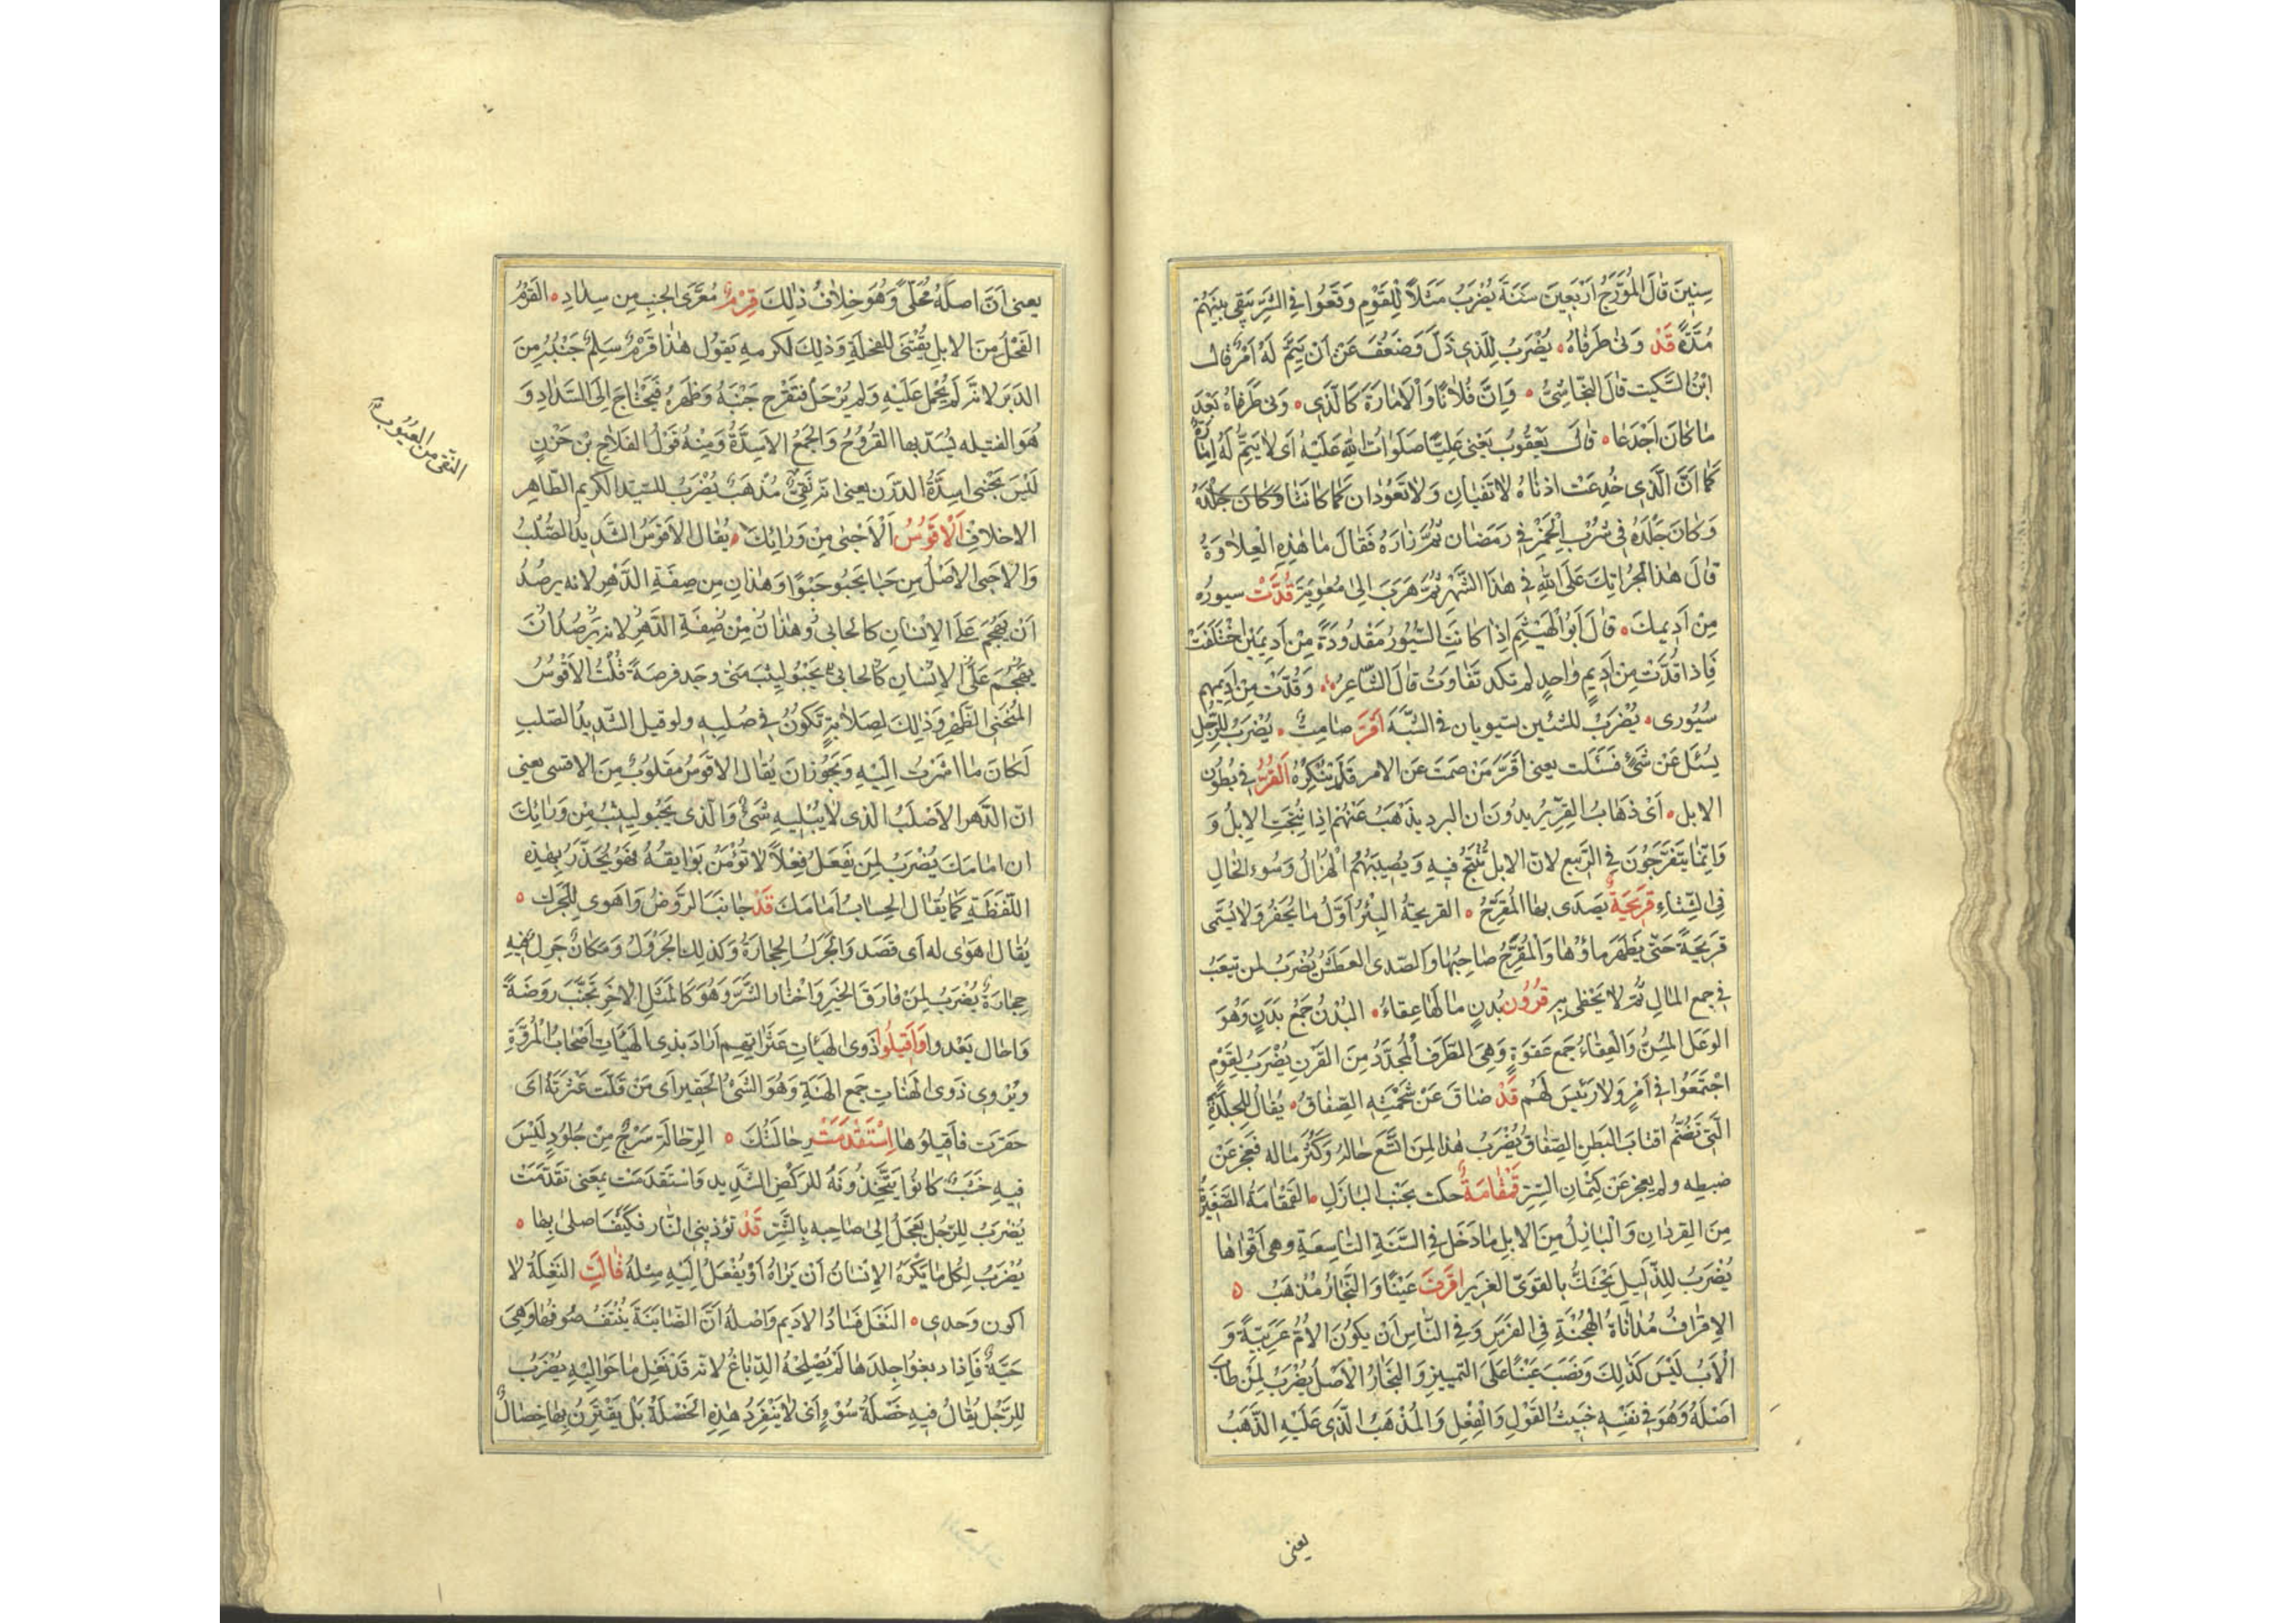 سِنِينَ قَالَ الْمُؤَرِّجُ اَرْبَعِينَ سَنَةً يُضْرَبُ مَثَلًا لِلْقَوْمِ وَقَعُوا فِي الشَّرِّ يَبْقَى بَيْنَهُمْ
مُدَّةً قَدْ وَنٰى طَرَفَاهُ ٥ يُضْرَبُ لِلَّذِي ذَلَّ وَضَعُفَ عَنْ اَنْ يَتِمَّ لَهُ اَمْرٌ قال
ابْنُ السِّكِّيتِ قَالَ النَّجَاشِيُّ ٥ وَاِنَّ فُلَانًا وَالْاِمَارَةَ كَالَّذِي ٥ وَنٰى طَرَفَاهُ بَعْدَ
مَا كَانَ اَجْدَعَا ٥ قَالَ يَعْقُوبُ يَعْنِي عَلِيًّا صَلَوَاتُ اللهِ عَلَيْهِ اَىْ لَا يَتِمُّ لَهُ اِمَارَةٌ
كَمَا اَنَّ الَّذِي جُدِعَتْ اُذْنَاهُ لَا تَفِيَانِ وَلَا تَعُودَانِ كَمَا كَانَتَا وَكَانَ جَلَدَهُ
وَكَانَ جَلَدَهُ فِي شُرْبِ الْخَمْرِ فِي رَمَضَانَ ثُمَّ زَادَهُ فَقَالَ مَا هٰذِهِ الْعِلَاوَةُ
قَالَ هٰذَا لِجُرْأَتِكَ عَلَى اللهِ فِي هٰذَا الشَّهْرِ ثُمَّ هَرَبَ اِلَى مُعٰوِيَةَ قُدَّتْ سيوره
مِنْ اَدِيمِكَ ٥ قَالَ اَبُو الْهَيْثَمِ اِذَا كَانَتِ السُّيُورُ مَقْدُودَةً مِنْ اَدِيمَيْنِ اخْتَلَفَتْ
فَاِذَا قُدَّتْ مِنْ اَدِيمٍ وَاحِدٍ لَمْ تَكَدْ تَفَاوَتُ قَالَ الشَّاعِرُ ٥ وَقُدَّتْ مِنْ اَدِيمِهِمْ
سُيُورِى ٥ يُضْرَبُ للشيئين يستويان فى الشَّبَهِ اَقَرَّ صَامِتٌ ٥ يُضْرَبُ لِلرَّجُلِ
يُسْئَلُ عَنْ شَىْءٍ فَسَكَتَ يعنى اَقَرَّ مَنْ صَمَتَ عَنِ الامر فَلَمْ يُنْكِرْهُ اَلْقُرُّ فِي بُطُونِ
الابل ٥ اَىْ ذَهَابُ الْقُرِّ يُرِيدُونَ ان البرد يَذْهَبُ عَنْهُمْ اِذَا نُتِجَتِ الْاِبِلُ وَ
وَاِنَّمَا يَتَفَرَّجُونَ فِي الرَّبِيعِ لانّ الابل تُنْتَجُ فِيهِ وَيُصِيبُهُمُ الْهُزَالُ وَسُوءُ الْحَالِ
فِى الشِّتَاءِ قَرِيحَةٌ يَصْدَى بِهَا الْمُقَرِّحُ ٥ القريحةُ الْبِئْرُ اَوَّلُ مَا يُحْفَرُ وَلَا يُسَمَّى
قَرِيحَةً حَتّٰى يَظْهَرَ مَاؤُهَا وَالْمُقَرِّحُ صَاحِبُهَا وَالصَّدَى الْعَطَشُ يُضْرَبُ لمن تَعِبَ
فِي جمع الْمَالِ ثُمَّ لَا يَحْظٰى بِهِ قُرُونُ بُدْنٍ مَا لَهَا عِقَاءٌ ٥ الْبُدْنُ جَمْعُ بَدَنٍ وَهُوَ
الْوَعِلُ الْمُسِنُّ وَالْعِقَاءُ جَمْعُ عَقْوَةٍ وَهِىَ الطَّرَفُ الْمُحَدَّدُ مِنَ الْقَرْنِ يُضْرَبُ لِقَوْمٍ
اجْتَمَعُوا فِي اَمْرٍ وَلَا رَئِيسَ لَهُمْ قَدْ ضَاقَ عَنْ شَحْمَتِهِ الصِّفَاقُ ٥ يُقَالُ لِلْجِلْدَةِ
الَّتِي تَضُمُّ اقتابَ الْبَطْنِ الصِّفَاقُ يُضْرَبُ هٰذَا لِمَنِ اتَّسَعَ حَالُهُ وَكَثُرَ ماله فَعَجَزَ عَنْ
ضبطه ولم يعجز عَنْ كِتْمَانِ السِّرِّ قَمْقَامَةٌ حكت بِجَنْبِ الْبَازِلِ ٥ القَمْقَامَةُ الصَّغِيرُ
مِنَ الْقِرْدَانِ وَالْبَازِلُ مِنَ الْابِلِ مَا دَخَلَ فِي السَّنَةِ التَّاسِعَةِ وهى اَقْوَاهَا
يُضْرَبُ لِلذَّلِيلِ يَحْتَكُّ بِالْقَوِىّ الْعَزِيزِ اقْرَفَ عَيْنًا وَالنِّجَارُ مُذْهَبٌ ٥
الْاِقْرَافُ مُدَانَاةُ الْهُجْنَةِ فِي الْفَرَسِ وَفِي النَّاسِ اَنْ يَكُونَ الْاُمُّ عَرَبِيَّةً وَ
الْاَبُ لَيْسَ كَذٰلِكَ وَنَصَبَ عَيْنًا عَلَى التَّمْيِيزِ وَالنِّجَارُ الْاَصْلُ يُضْرَبُ لِمَنْ طَابَ
اَصْلُهُ وَهُوَ فِي نَفْسِهِ خَبِيثُ الْقَوْلِ وَالْفِعْلِ وَالْمُذْهَبُ الَّذِى عَلَيْهِ الذَّهَبُ
يعنى
يعنى اَنَّ اَصْلَهُ مُحَلًّى وَهُوَ خِلَافُ ذٰلِكَ قَرْمٌ مُعَرَّى الجنبِ مِن سِدَادٍ ٥ القَرْمُ
الْفَحْلُ مِنَ الْابِلِ يُقْتَنَى لِلْفِحْلَةِ وَذٰلِكَ لكرمهِ يَقُولُ هٰذَا قَرْمٌ سَلِمٌ جَنْبُهُ مِنَ
الدَّبَرِ لانه لَمْ يُحْمَلْ عَلَيْهِ وَلَمْ يُرْحَلْ فَتَقْرَح جَنْبُهُ وَظَهْرُهُ فَيَحْتَاج اِلَى السِّدَادِ وَ
هُوَ الفتيله يُسَدّ بها الْقُرُوحُ وَالْجَمْعُ الْاَسِدَّةُ وَمِنْهُ قَوْلُ الفلاخِ بْنِ حَزْنٍ
لَيْسَ بِجَنْبِى اَسِدَّةُ الدَّرَنِ يعنى انه نَقِىٌّ مُذْهَبٌ يُضْرَبُ للسَّيِّدِ الكريم الطَّاهِرِ
الاخلاقِ اَلْاَقْوَسُ اَلْاَحْبٰى مِنْ وَرَائِكَ ٥ يُقَالُ الْاَقْوَسُ الشَّدِيدُ الصُّلْبُ
وَالْاحبى الاَصْلُ مِن حَبَا يَحْبُو حَبْوًا وَهٰذَانِ مِن صِفَةِ الدَّهْرِ لانه يرصُدُ
اَنْ يَهْجُمَ عَلَى الْاِنْسَانِ كالحَابِى وَهٰذَانِ مِنْ صِفَةِ الدَّهْرِ لانه يَرْصُدُ اَنْ
يَهْجُمَ عَلَى الْاِنْسَانِ كالحابى يَحْبُو لِيَثِبَ مَتَى وجَد فرصَةً قُلْتُ الْاَقْوَسُ
الْمُنْحَنِى الظَّهْرِ وَذٰلِكَ لِصَلَابَةٍ تَكُونُ فِي صُلْبِهِ ولو قيل الشَّدِيدُ الصُّلْبِ
لَكَانَ مَا اشَرْتُ اِلَيْهِ وَيَجُوزُ اَنْ يُقَال الاقوَسُ مَقْلُوبٌ مِنَ الاقسى يعنى
انّ الدَّهر الْاَصْلَبُ الذى لَا يُبْلِيهِ شَىْءٌ وَالَّذى يَحْبُو لِيَثِبَ مِنْ وَرَائِكَ
ان امَامَكَ يُضْرَبُ لِمَنْ يَفْعَلُ فِعْلًا لَا تُؤْمَنُ بَوَايِقُهُ فَهُوَ يُحَذَّرُ بِهٰذِهِ
اللَّفْظَةِ كَمَا يُقَالُ الحسابُ اَمَامَكَ قَدْ جَانَبَ الرَّوْضَ وَاَهْوى لِلْجَرَلِ ٥
يُقَال اَهْوَى له اَى قَصَدَ وَالْجَرَلُ الحِجَارَةُ وَكذلك الجَرْوَلُ وَمَكَانٌ جَرِلٌ فِيهِ
حِجَارَةٌ يُضْرَبُ لِمَنْ فَارَقَ الْخَيْرَ وَاخْتَارَ الشَّرَّ وَهُوَ كَالْمَثَلِ الْآخَرِ تَجَنَّبَ رَوْضَةً
وَاحَالَ يَعْدو وَاَقِيلُوا ذَوِى الهَيْئَاتِ عَثَرَاتِهِمْ اَرَادَ بذِى الْهَيْئَاتِ اَصْحَابُ الْمُرُوَّةِ
وَيُرْوى ذَوِى الْهَنَاتِ جَمع الْهَنَةِ وَهُوَ الشَّىْءُ الحقير اَى مَنْ قَلَّتْ عَثْرَتُهُ اَى
حَقُرَت فاَقِيلُوهَا اِسْتَقْدَمَتْ رِحَالَتُكَ ٥ الرِّحَالَةُ سَرْجٌ مِنْ جُلُودٍ لَيْسَ
فِيهِ خَشَبٌ كَانُوا يَتَّخِذُونَهُ للرَّكْضِ الشَّدِيد وَاسْتَقْدَمَتْ بِمَعْنى تَقَدَّمَتْ
يُضْرَبُ لِلرَّجُلِ يَعْجَلُ اِلَى صَاحِبِهِ بِالشَّرِّ قَدْ تؤذينى النَّار فكَيْفَ اصلىٰ بِهَا ٥
يُضْرَبُ لِكُلِّ مَا يَكْرَهُ الْاِنْسَانُ اَنْ يَرَاهُ اَوْ يُفْعَلَ اِلَيْهِ مِثْلُهُ قَالَتِ النَّغِلَةُ لَا
اكون وَحدى ٥ النَّغَلُ فَسَادُ الْاَدِيمِ وَاَصْلُهُ اَنَّ الضَّائِنَةَ يُنْتَفُ صُوفُهَا وَهِىَ
حَيَّةٌ فَاِذَا دبغوا جِلدَهَا لَمْ يُصْلِحْهُ الدِّبَاغُ لانه قَدْ نَغِلَ مَا حَوَالَيْهِ يُضْرَبُ
لِلرَّجُلِ يُقَالُ فِيهِ خَصْلَةُ سُوْءٍ اَى لَا يَنْفَرِدُ هٰذِهِ الْخَصْلَةُ بَلْ يَقْتَرِنُ بِهَا خِصَالٌ
النقى من العيُوب